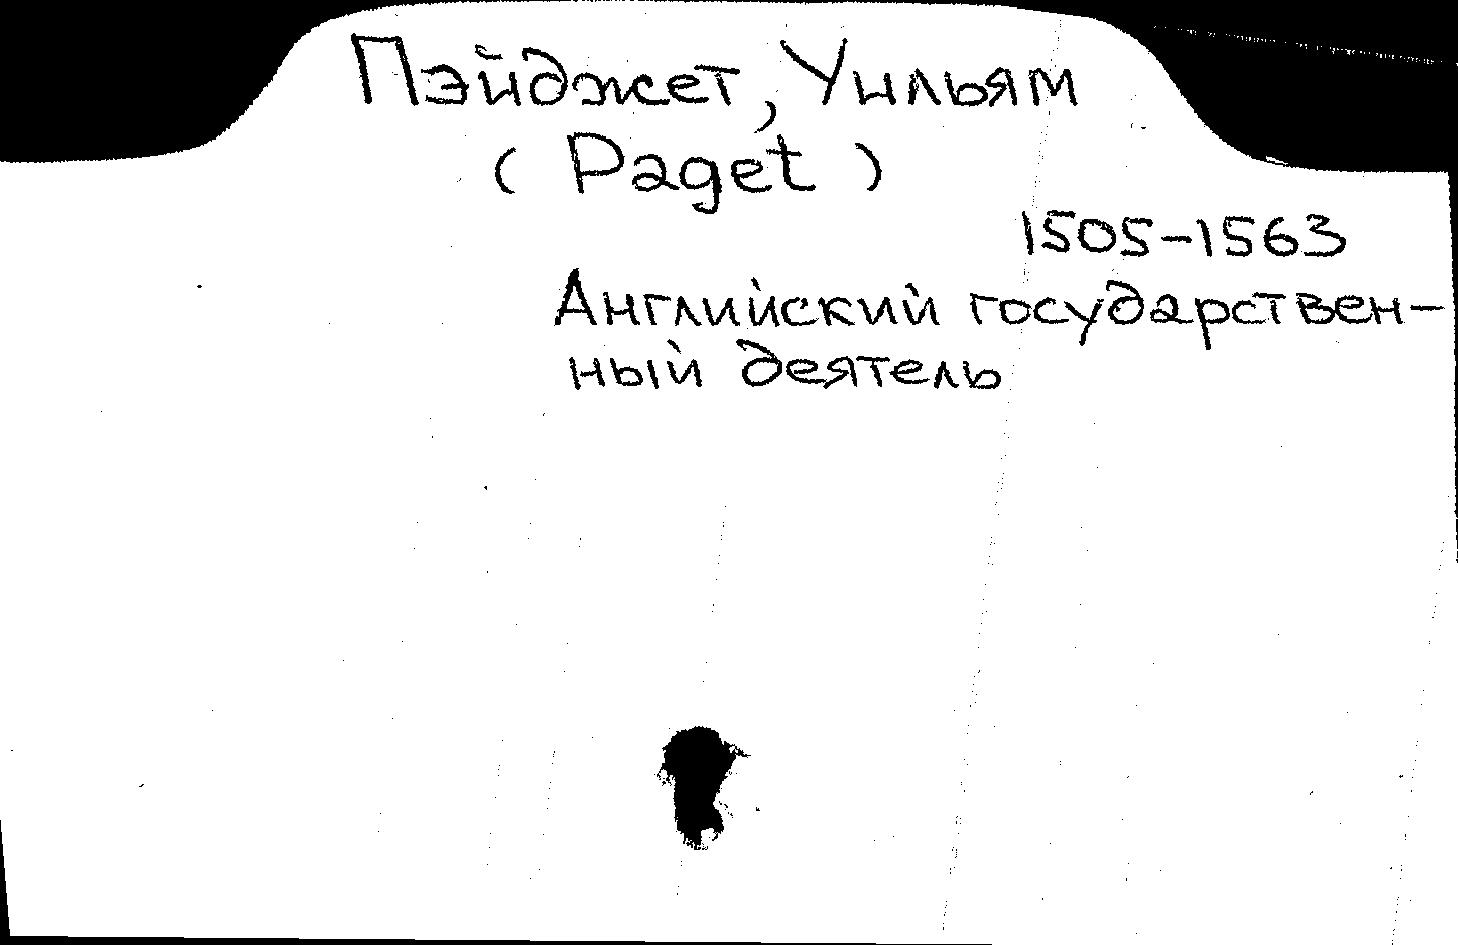 Пэйджет, Уильям
( Paget )
1505-1563
Английский государствен-
ный деятель